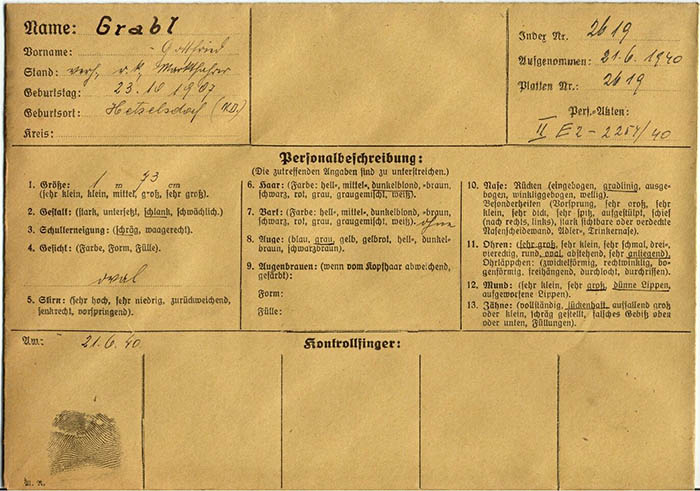 Name: Grabl
Vorname: Gottfried
Stand: verh. r. k. Marktfahrer
Geburtstag: 23. 10 1907
Geburtsort: Hetzelsdorf (N.D.)
Kreis:
Index Nr. 2619
Aufgenommen: 21. 6. 1940
Platten Nr.: 2619
Pers.-Akten:
II E2 - 2257/40
Personalbeschreibung:
(Die zutreffenden Angaben sind zu unterstreichen).
1. Größe: 1 m 73 cm
(sehr klein, klein, mittel, groß, sehr groß).
2. Gestalt: (stark, untersetzt, schlank, schwächlich).
3. Schulterneigung: (schräg, waagerecht).
4. Gesicht: (Farbe, Form, Fülle).
oval
5. Stirn: (sehr hoch, sehr niedrig, zurückweichend,
senkrecht, vorspringend).
6. Haar: (Farbe: hell-, mittel-, dunkelblond, -braun,
schwarz, rot, grau, graugemischt, weiß).
7. Bart: (Farbe: hell-, mittel-, dunkelblond, -braun,
schwarz, rot, grau, graugemischt, weiß). ohne
8. Auge: (blau, grau, gelb, gelbrot, hell-, dunkel-
braun, schwarzbraun).
9. Augenbrauen: (wenn vom Kopfhaar abweichend,
gefärbt):
Form:
Fülle:
10. Nase: Rücken (eingebogen, gradlinig, ausge-
bogen, winkliggebogen, wellig).
Besonderheiten (Vorsprung, sehr groß, sehr
klein, sehr dick, sehr spitz, aufgestülpt, schief
(nach rechts, links), stark sichtbare oder verdeckte
Nasenscheidewand, Adler-, Trinkernase).
11. Ohren: (sehr groß, sehr klein, sehr schmal, drei-
viereckig, rund, oval, abstehend, sehr anliegend);
Ohrläppchen: (zwickelförmig, rechtwinklig, bo-
genförmig, freihängend, durchlocht, durchrissen).
12. Mund: (sehr klein, sehr groß, dünne Lippen,
aufgeworfene Lippen).
13. Zähne: (vollständig, lückenhaft, auffallend groß
oder klein, schräg gestellt, falsches Gebiß oben
oder unten, Füllungen).
Am: 21. 6. 40
Kontrollfinger: